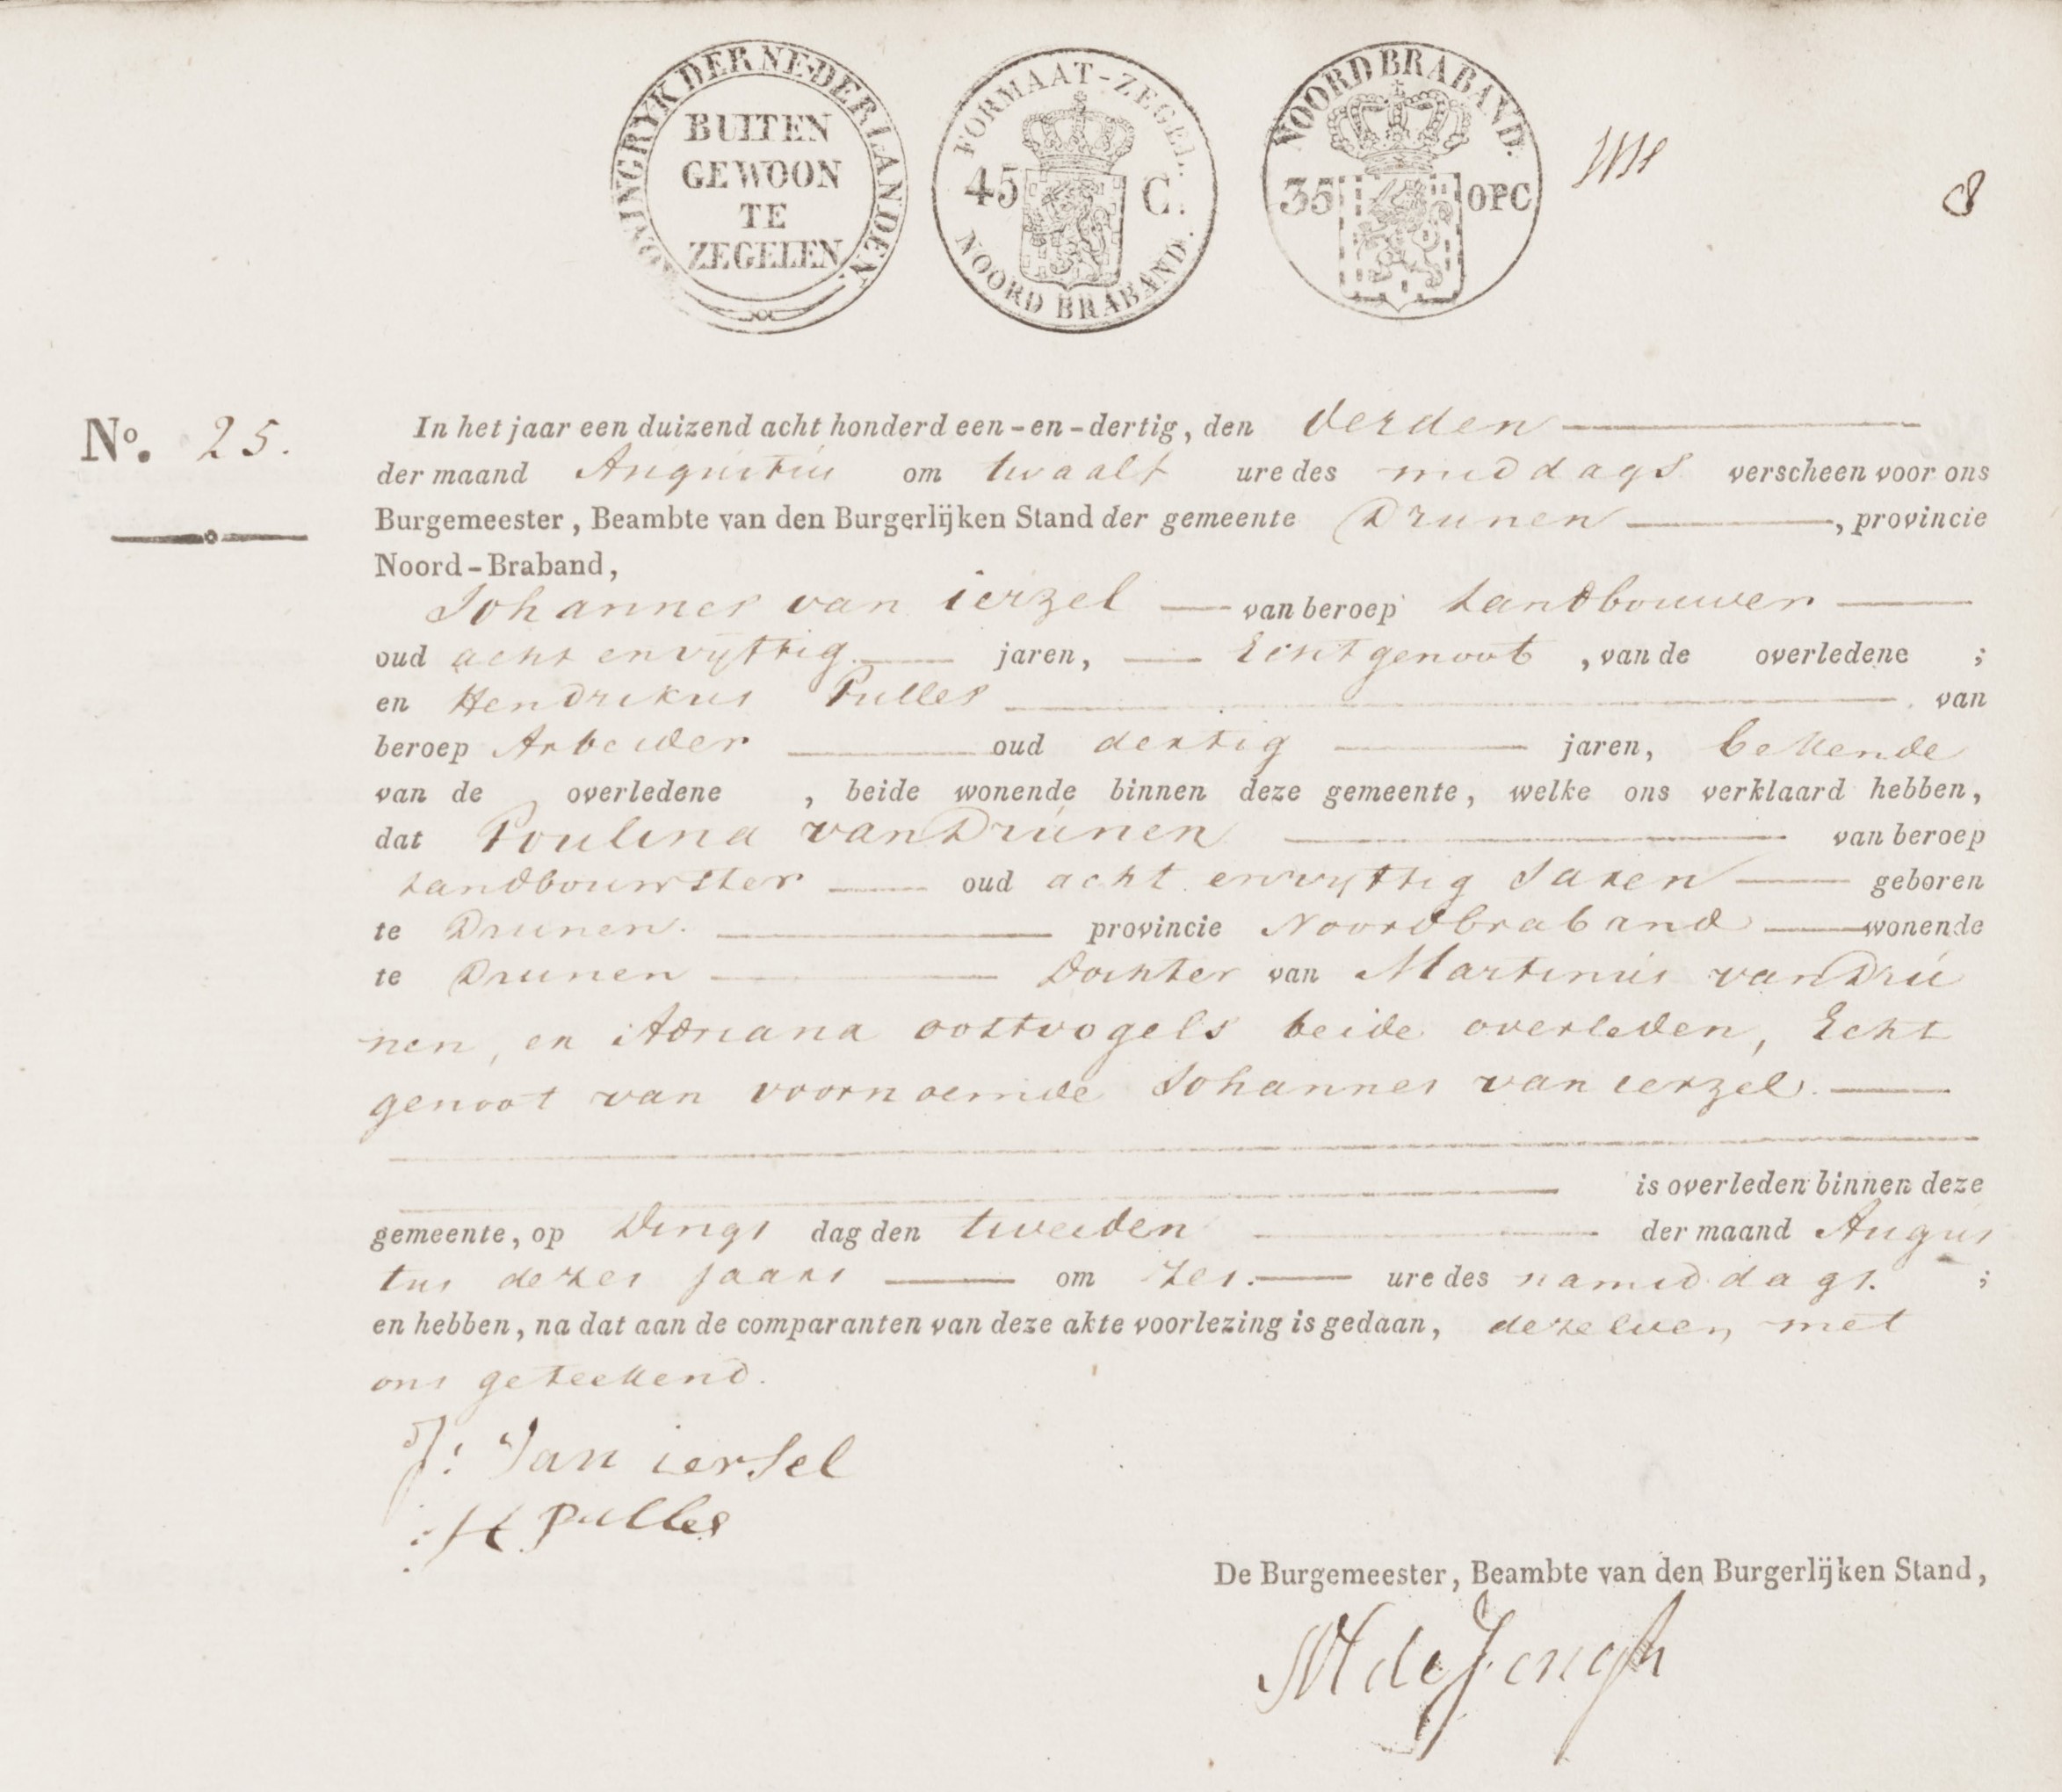 KONINGRYK DER NEDERLANDEN
BUITEN
GEWOON
TE
ZEGELEN
FORMAAT-ZEGEL.
45 C.
NOORD BRABAND.
NOORD BRABAND.
35 OPC
8
No. 25.
In het jaar een duizend acht honderd een-en-dertig, den derden
der maand Augustus om twaalf ure des middags verscheen voor ons
Burgemeester, Beambte van den Burgerlijken Stand der gemeente Drunen, provincie
Noord-Braband,
Johannes van ierzel van beroep Landbouwer
oud acht envyftig jaren, Echtgenoot, van de overledene;
en Hendrikus Pulles van
beroep Arbeider oud dertig jaren, bekende
van de overledene, beide wonende binnen deze gemeente, welke ons verklaard hebben,
dat Poulina van Drunen van beroep
Landbouwster oud acht envyftig Jaren geboren
te Drunen. provincie Noordbraband wonende
te Drunen Dochter van Martinus van Dru
nen, en Adriana oostvogels beide overleden, Echt
genoot van voornoemde Johannes van ierzel.
is overleden binnen deze
gemeente, op Dings dag den tweeden der maand Augus
tus dezes jaars om zes. ure des namiddags.;
en hebben, na dat aan de comparanten van deze akte voorlezing is gedaan, dezelven met
ons geteekend.
J: Van iersel
H Pulles
De Burgemeester, Beambte van den Burgerlijken Stand,
M de Jongh